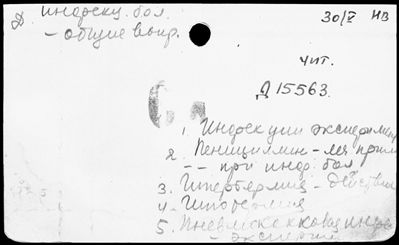 Д инфекц. бол.
– общие вопр.
30/V НВ
чит.
Д 15563.
1. Инфекции эксперимен
2. Пенициллин – леч. прим
– – при инф. бол
3. Гипертермия – действие
4 – Гипотермия
5. Пневмококковая инфек
– эксперим